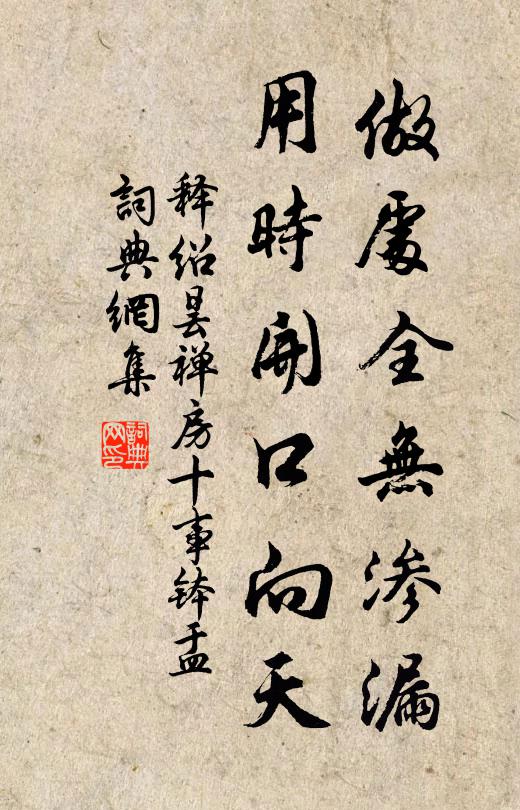 做處全無渗漏
用時開口向天
释紹曇禅房十事钵盂
詞典網集
詞典网印